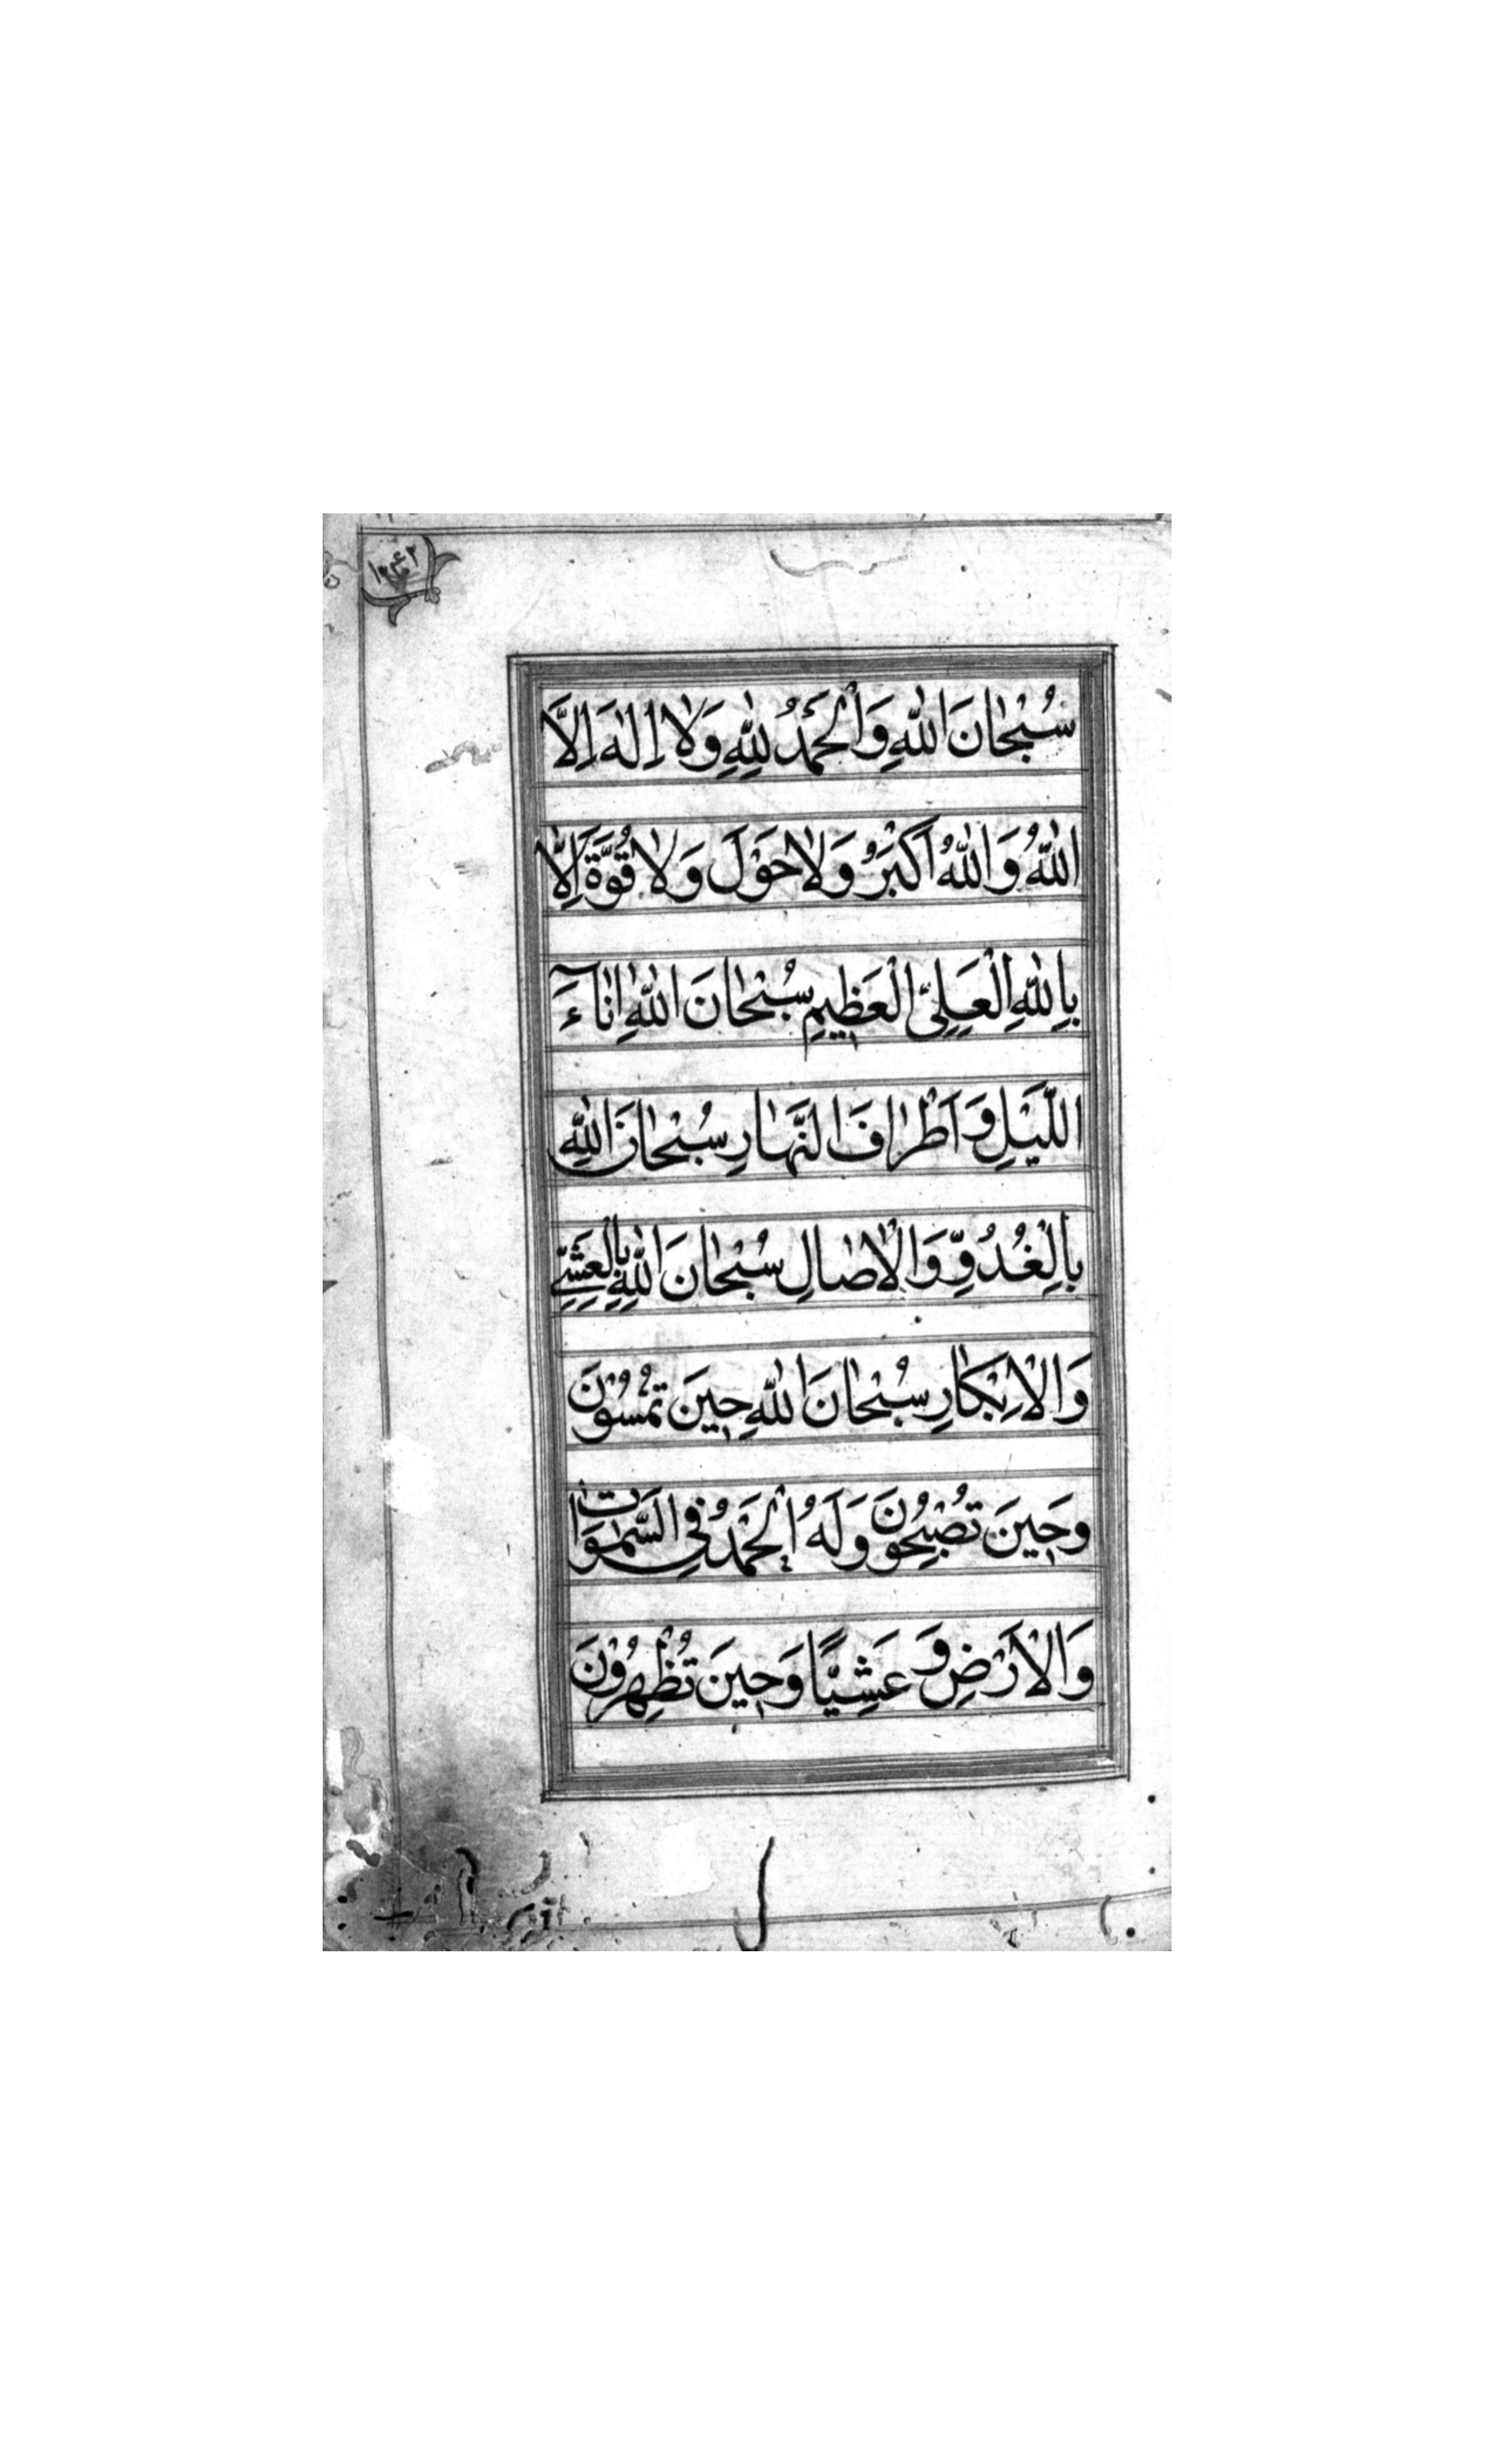 سُبْحانَ اللهِ وَالْحَمْدُ لِلهِ وَلا اِلهَ اِلاَّ
اللهُ وَاللهُ اَكْبَرُ وَلا حَوْلَ وَلا قُوَّةَ اِلاّ
بِاللهِ الْعَلِيِّ الْعَظِيمِ سُبْحانَ اللهِ اناءَ
اللَّيْلِ وَ اَطْرافَ النَّهارِ سُبْحانَ اللهِ
بِالْغُدُوِّ وَالْاصالِ سُبْحانَ اللهِ بِالْعَشِيِّ
وَالْاِبْكارِ سُبْحانَ اللهِ حِينَ تُمْسُوْنَ
وَحِينَ تُصْبِحُونَ وَلَهُ الْحَمْدُ فِي السَّموَاتِ
وَالْاَرْضِ وَ عَشِيًّا وَحِينَ تُظْهِرُوْنَ